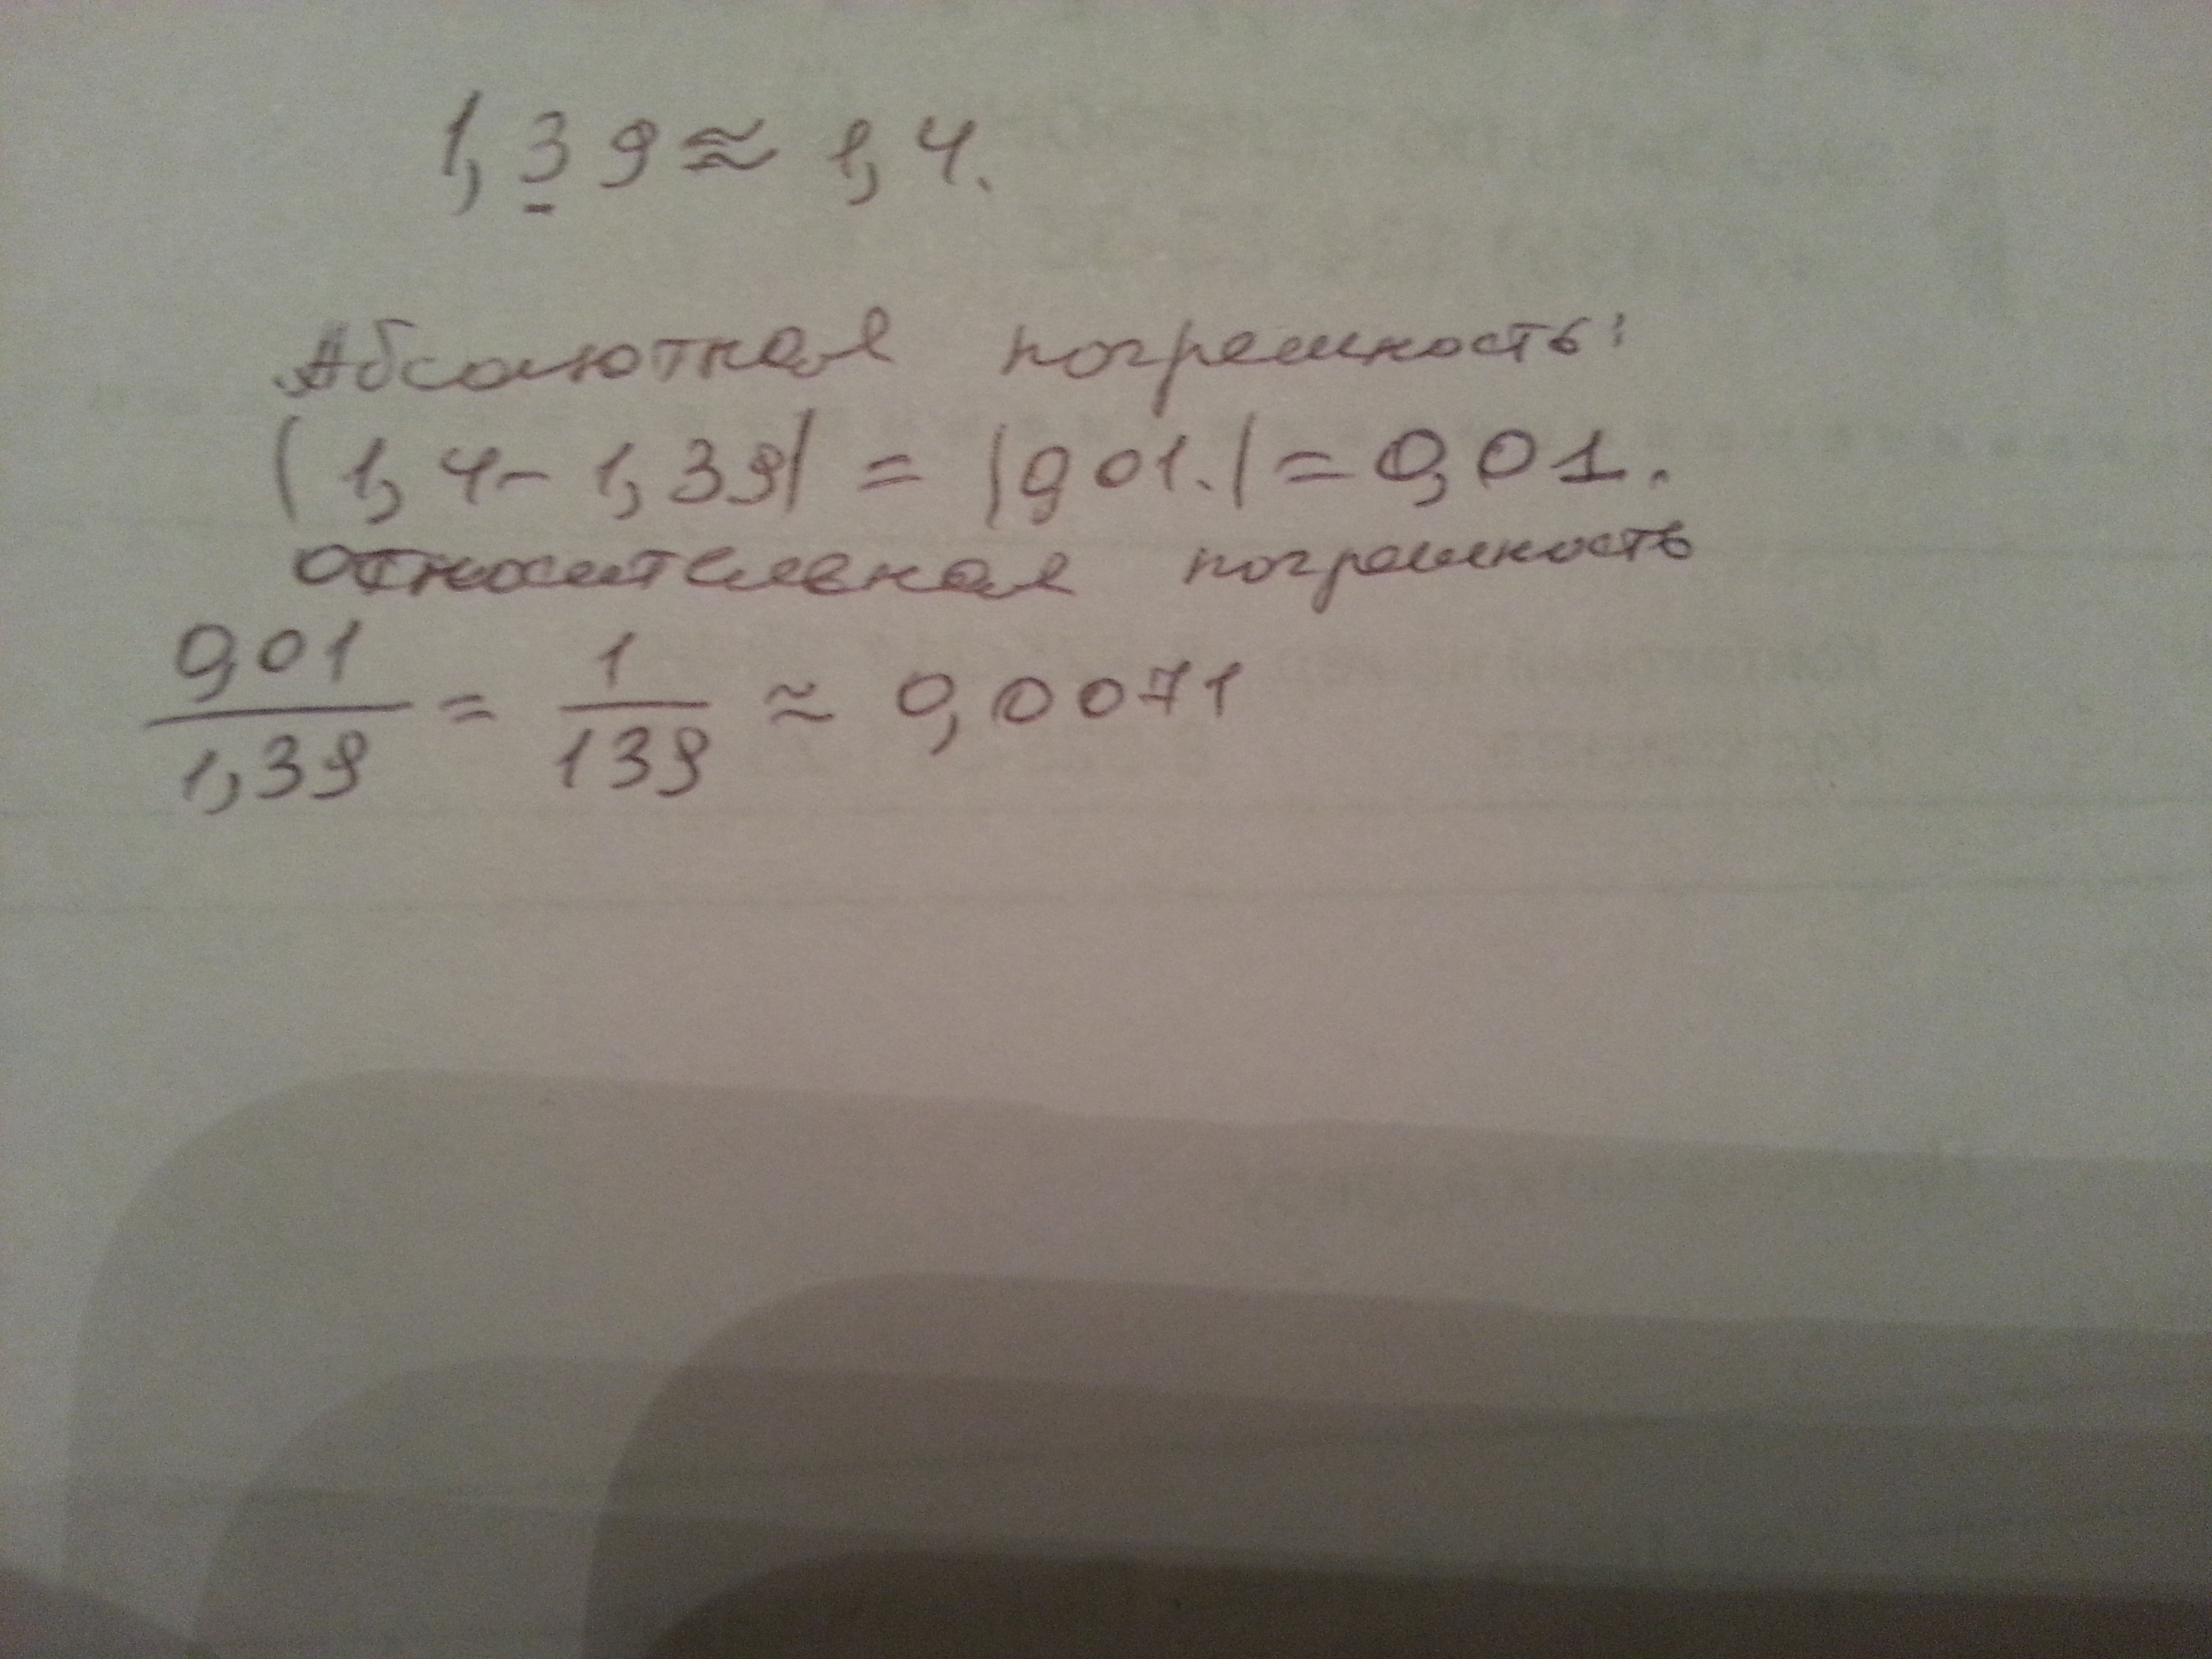 1,39 ≈ 1,4.
Абсолютная погрешность:
|1,4 - 1,39| = |0,01.| = 0,01.
относительная погрешность
0,01/1,39 = 1/139 ≈ 0,0071